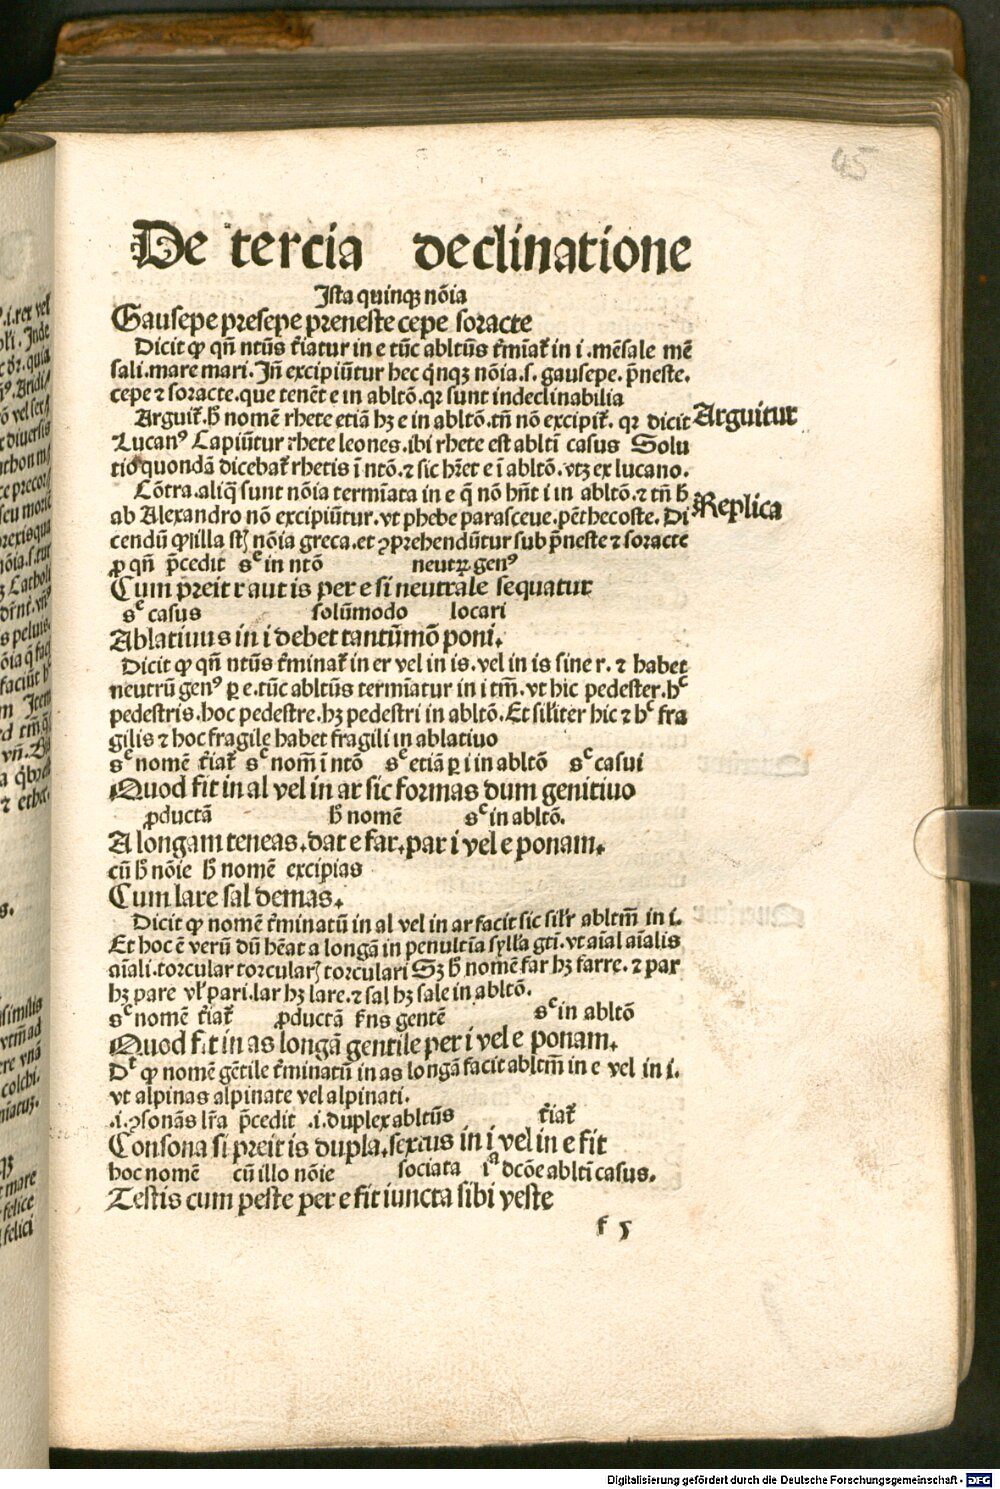 45
De tercia declinatione
Ista quinqꝫ nōia
Gausepe presepe preneste cepe soracte
Dicit ꝙ qn̄ ntūs t̄iatur in e tūc abltūs t̄mīat᷑ in i .mēsale mē
sali.mare mari.In̄ excipiūtur hec q̄nqꝫ nōia.s. gausepe. p̄neste.
cepe ⁊ soracte.que tenēt e in abltō.qꝛ sunt indeclinabilia
Arguit᷑.h̄ nomē rhete etiā hꝫ e in abltō.tn̄ nō excipit᷑. qꝛ dicit Arguitur
Lucanꝰ Capiūtur rhete leones.ibi rhete est abltī casus Solu
tio quondā dicebat᷑ rhetis ī ntō.⁊ sic hr̄et e ī abltō.vtꝫ ex lucano.
Cōtra.aliq̄ sunt nōia termīata in e q̄ nō hn̄t i in abltō.⁊ tn̄ h̄ Replica
ab Alexandro nō excipiūtur.vt phebe parasceue.pēthecoste. Di
cendū ꝙ illa st̄ nōia greca.et ꝯprehendūtur sub p̄neste ⁊ soracte
ꝓ qn̄ p̄cedit sᶜ in ntō neutꝝ genꝰ
Cum preit r aut is per e si neutrale sequatur
sᶜ casus solūmodo locari
Ablatiuus in i debet tantūmō poni.
Dicit ꝙ qn̄ ntūs t̄minat᷑ in er vel in is.vel in is sine r. ⁊ habet
neutrū genꝰ ꝑ e.tūc abltūs termīatur in i tm̄.vt hic pedester.hᶜ
pedestris.hoc pedestre.hꝫ pedestri in abltō.Et silīter hic ⁊ hᶜ fra
gilis ⁊ hoc fragile habet fragili in ablatiuo
sᶜ nomē t̄iat᷑ sᶜ nom̄ ī ntō sᶜ etiā ꝑ i in abltō sᶜ casui
Quod fit in al vel in ar sic formas dum genitiuo
ꝓductā h̄ nomē sᶜ in abltō.
A longam teneas.dat e far.par i vel e ponam.
cū h̄ nōie h̄ nomē excipias
Cum lare sal demas.
Dicit ꝙ nomē t̄minatū in al vel in ar facit sic silr̄ abltm̄ in i.
Et hoc ē verū dū hēat a longā in penultīa sylła gtī.vt aīal aīalis
aīali.torcular torcularꝭ torculari Sꝫ h̄ nomē far hꝫ farre. ⁊ par
hꝫ pare vł pari.lar hꝫ lare.⁊ sal hꝫ sale in abltō.
sᶜ nomē t̄iat᷑ ꝓductā t̄ns gentē sᶜ in abltō
Quod fit in as longā gentile per i vel e ponam.
Dᵗ ꝙ nomē gētile t̄minatū in as longā facit abltm̄ in e vel in i.
vt alpinas alpinate vel alpinati.
.i.ꝯsonās lr̄a p̄cedit .i.duplex abltūs t̄iat᷑
Consona si preit is dupla.sextus in i vel in e fit
hoc nomē cū illo nōie sociata iᵃ dcōe abltī casus.
Testis cum peste per e fit iuncta sibi veste
f 5
Digitalisierung gefördert durch die Deutsche Forschungsgemeinschaft - DFG